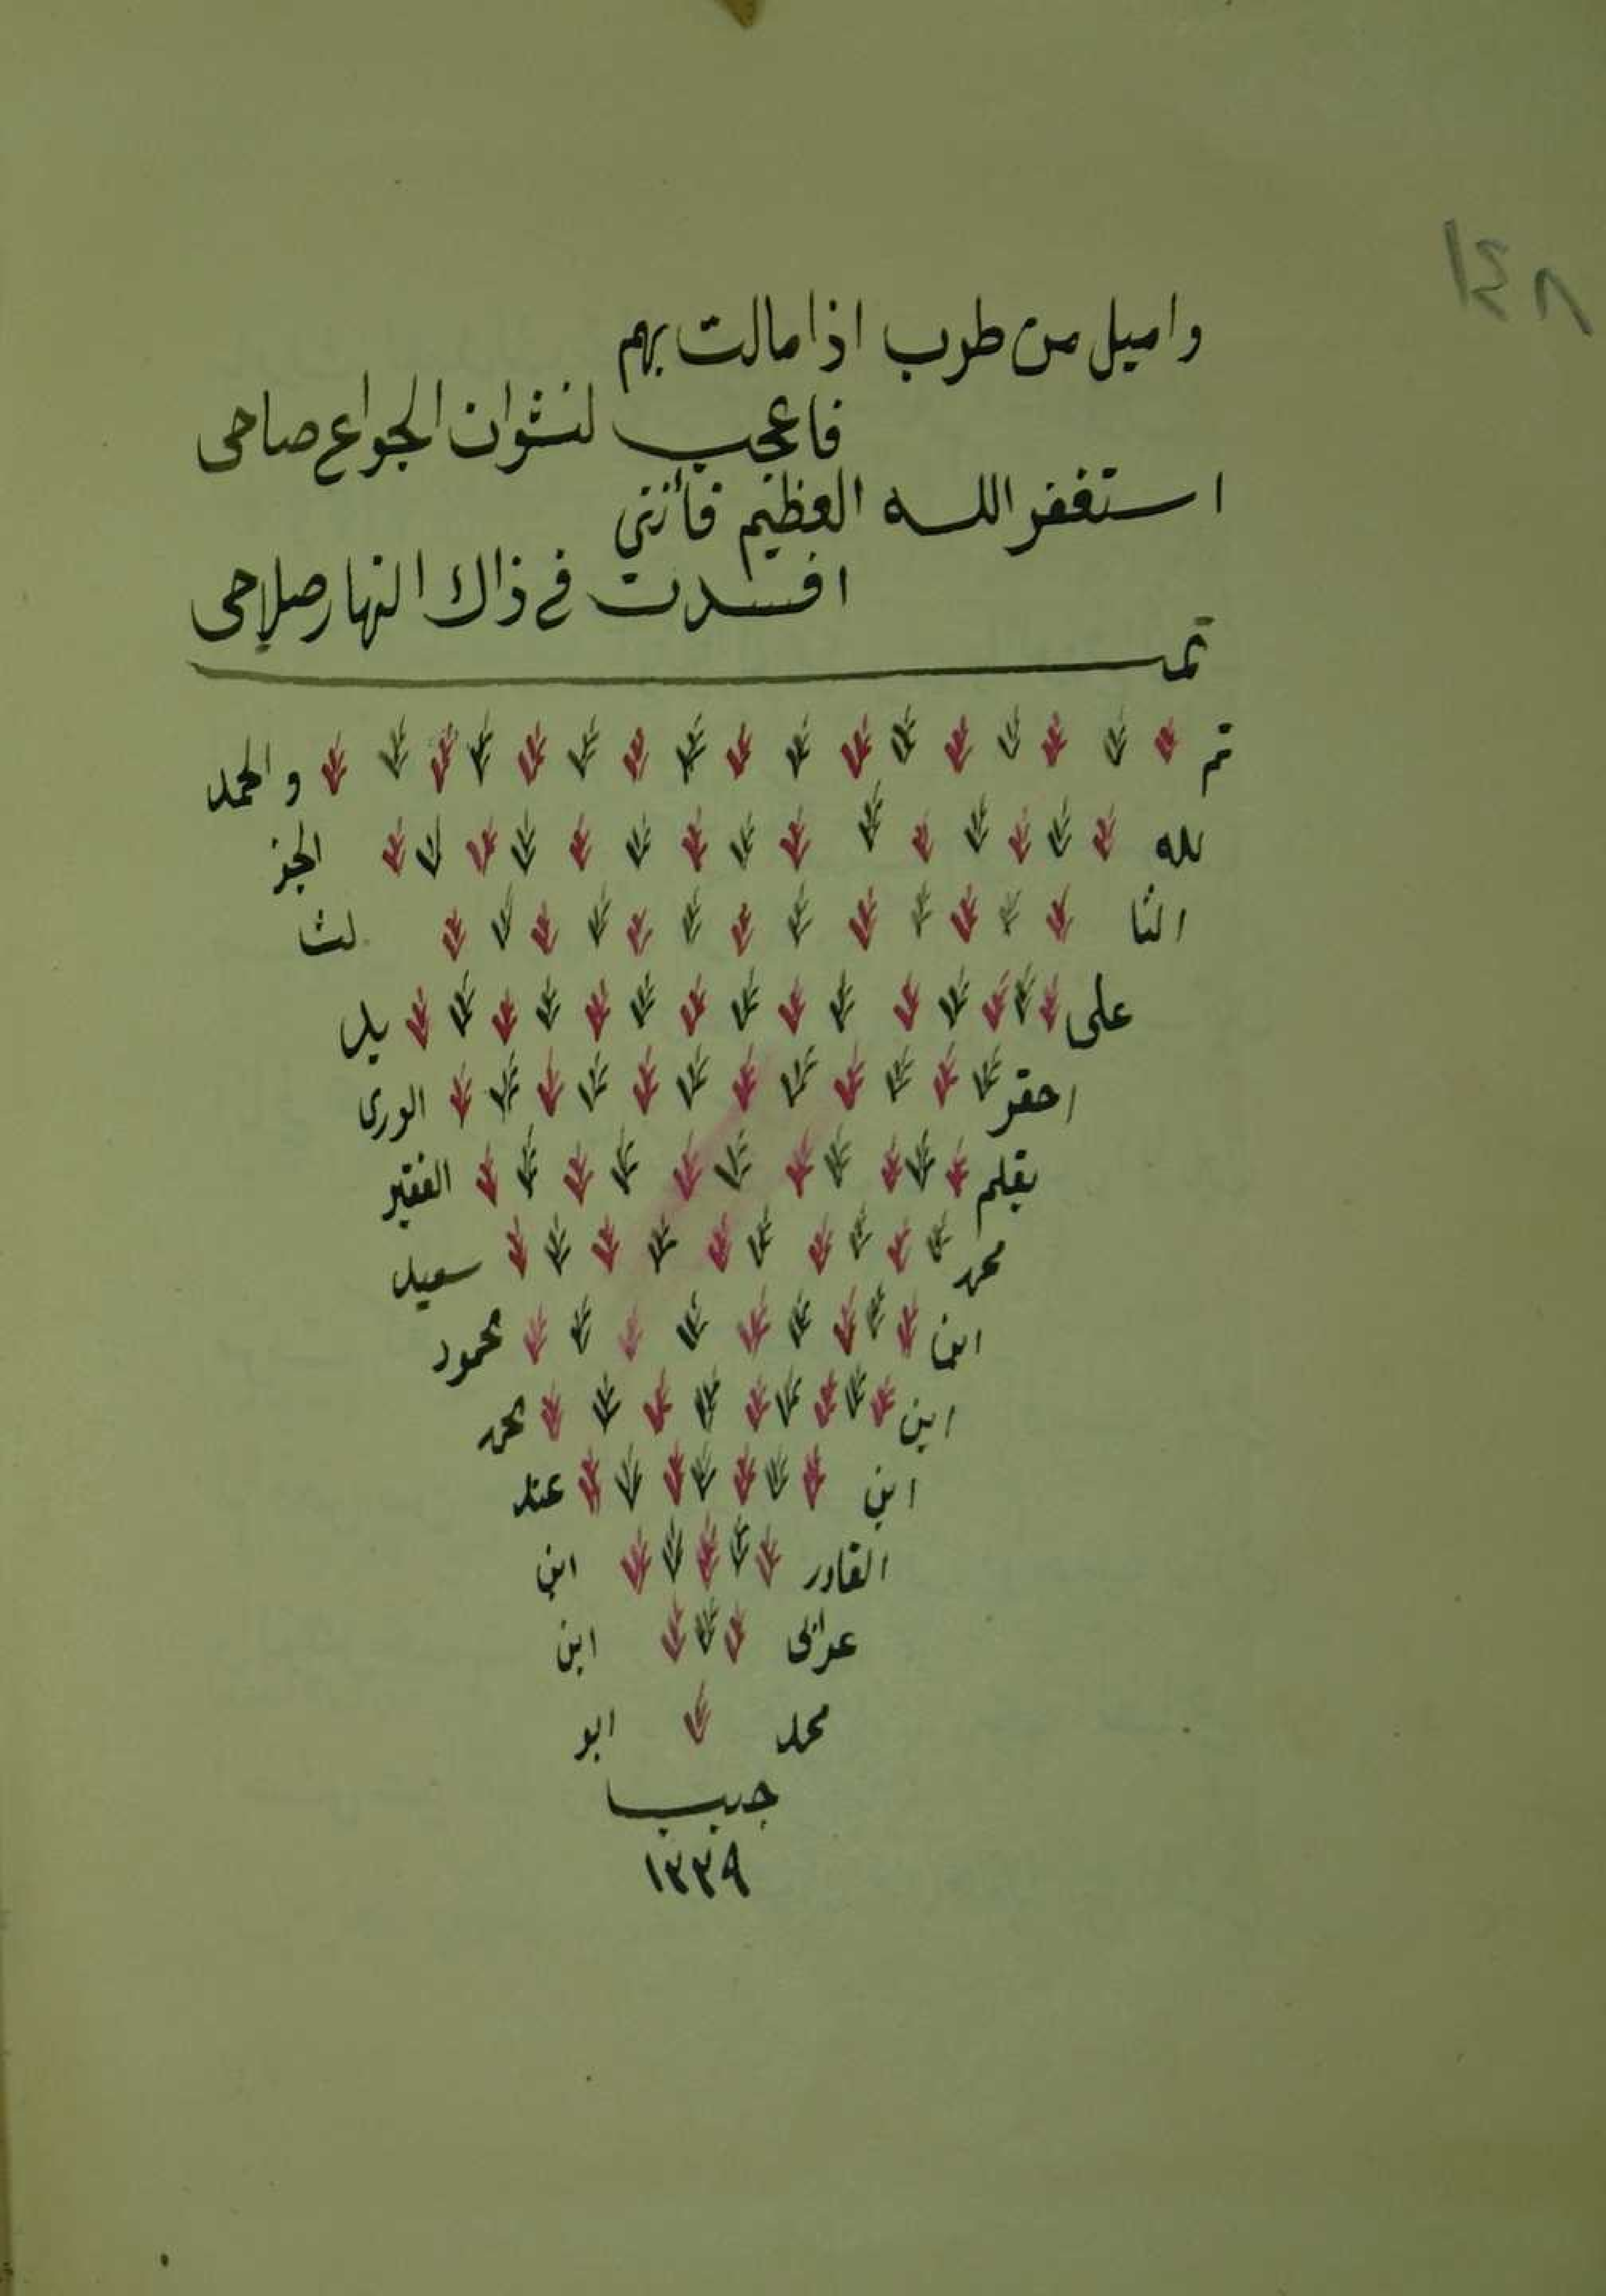 ١٤٨
واميل من طرب اذا مالت بهم
فاعجب لنشوان الجوا ع صاحى
استغفر الله العظيم فأننى
افسدت فى ذاك النهار صلاحى
تمـ
تم والحمد
لله الجز
الثا لث
على يد
احقر الورى
بقلم الفقير
محمد سعيد
ابن محمود
ابن محمد
ابن عبد
القادر ابن
ابن
محمد ابو
حبيب
١٣٣٩